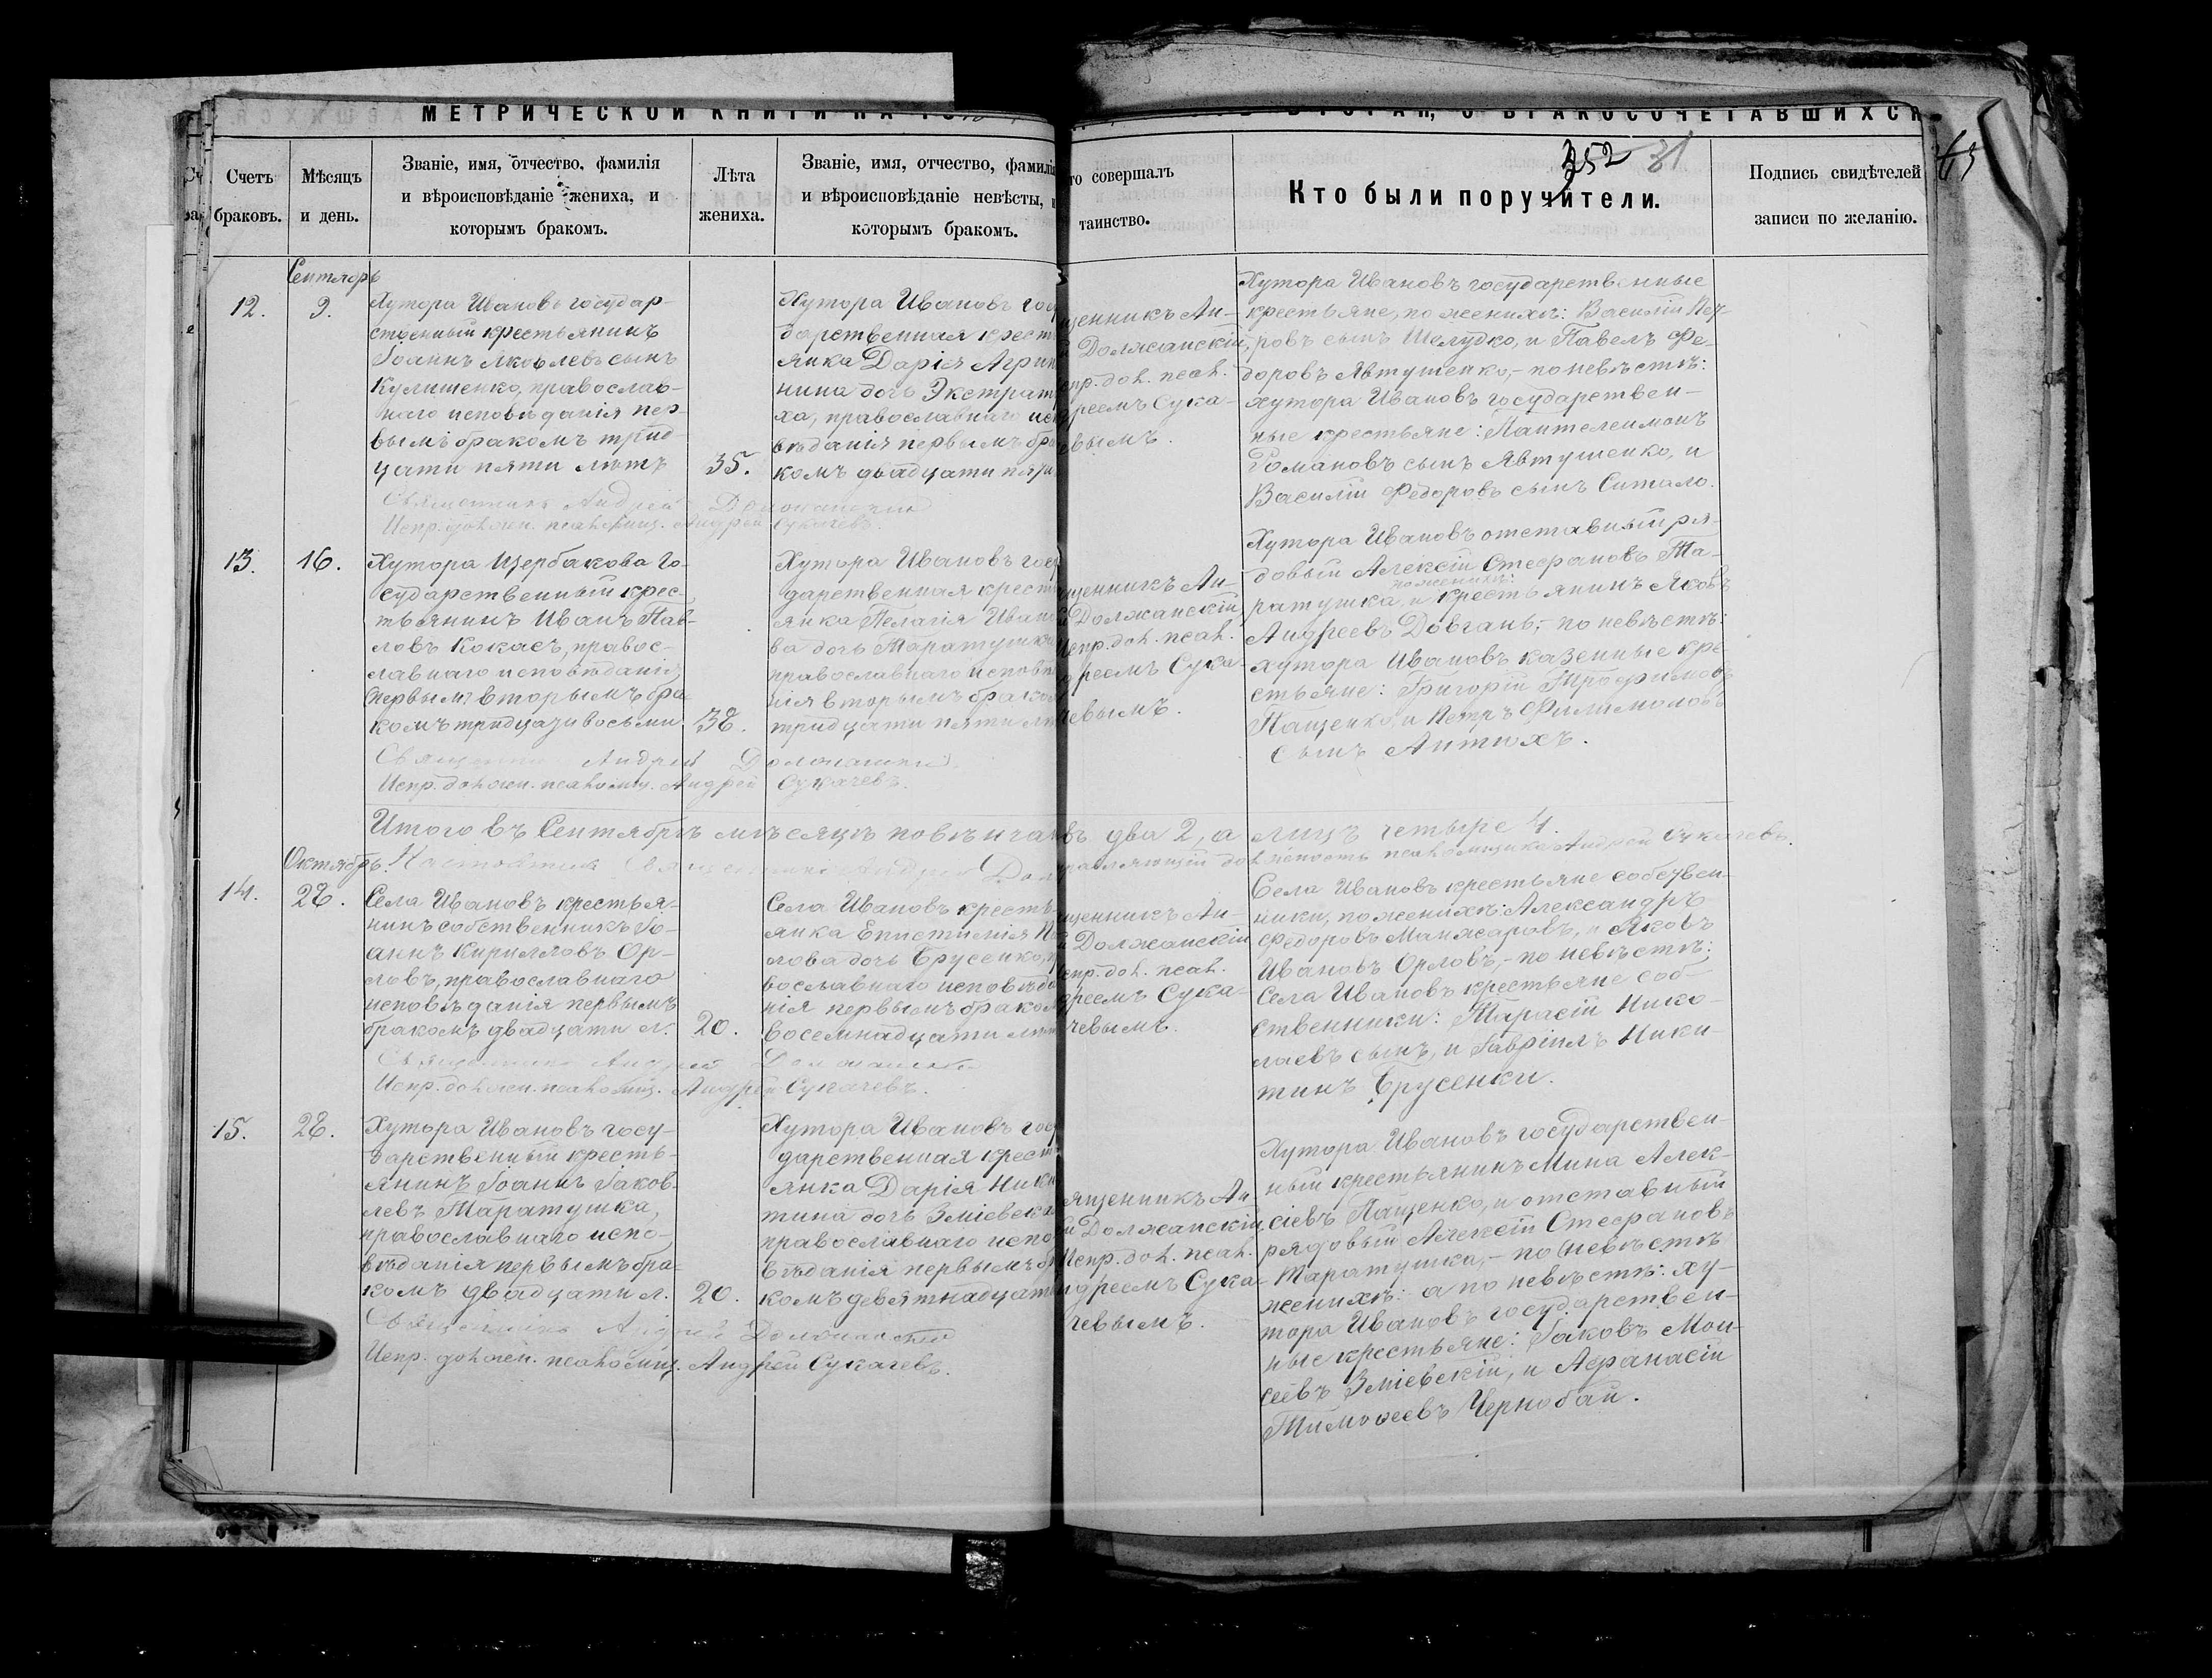 МЕТРИЧЕСКОЙ КНИГИ НА
О БРАКОСОЧЕТАВШИХСЯ
252 31
Счетъ браковъ.
Мѣсяцъ и день.
Званіе, имя, отчество, фамилія
и вѣроисповѣданіе жениха, и
которымъ бракомъ.
Лѣта
жениха.
Званіе, имя, отчество, фамилі
и вѣроисповѣданіе невѣсты, и
которымъ бракомъ.
то совершалъ
таинство.
Кто были поручители.
Подпись свидѣтелей
записи по желанію.
Сентябрь
12.
9.
Хутора Ивановъ государ-
ственный крестьянинъ
Іоаннъ Яковлевъ сынъ
Кулишенко, православ-
наго исповѣданія пер-
вымъ бракомъ трид-
цати пяти лѣтъ
35.
Хутора Ивановъ госу
дарственная крест
янка Дарія Агрип
нина дочь Экстрат
ха, православнаго исп
вѣданія первымъ бра
комъ двадцати пяти
щенникъ Ан-
й Должанскій,
спр. дол. псал.
реемъ Сука-
евымъ.
Хутора Ивановъ государственные
крестьяне, по женихѣ: Василій Пет-
ровъ сынъ Шелудко, и Павелъ Фе-
доровъ Явтушенко,- по невѣстѣ:
хутора Ивановъ государствен-
ные крестьяне: Пантелеимонъ
Романовъ сынъ Явтушенко, и
Василій Федоровъ сынъ Ситало.
Священникъ Андрей Должанскій
Испр. должн. псаломщ. Андрей Сукачевъ.
13.
16.
Хутора Щербакова Го-
сударственный крес-
тьянинъ Иванъ Пав-
ловъ Кокасъ, правос-
лавнаго исповѣданія,
первымъ вторымъ бра-
комъ тридцати восьми
38.
Хутора Ивановъ госу
дарственная крест
янка Пелагія Ивано
ва дочь Таратушка
православнаго исповѣда
нія вторымъ браком
тридцати пяти лѣ
щенникъ Ан-
й Должанскій
Испр. дол. псал.
реемъ Сука-
чевымъ.
Хутора Ивановъ отставный ря-
довый Алексій Стефановъ Та-
по женихѣ:
ратушка, и крестьянинъ Яковъ
Андреевъ Довгань;- по невѣстѣ:
хутора Ивановъ казенные кре
стьяне: Григорій Трофимовъ
Пащенко, и Петръ Филимоновъ
сынъ Антихъ.
Священникъ Андрей Должанскій
Испр. должн. псаломщ. Андрей Сукачевъ.
Итого въ Сентябрѣ мѣсяцѣ повѣнчаковъ два 2, а лицъ четыре 4.
Октябрь.
Настоятель Священникъ Андрей Дол
равляющій должность псаломщика Андрей Сукачевъ.
14.
28.
Села Ивановъ крестья-
нинъ собственникъ Іо-
аннъ Кирилловъ Ор-
ловъ, православнаго
исповѣданія первымъ
бракомъ двадцати л.
20.
Села Ивановъ кресть-
янка Епистимія
дочь Брусенко, пр
вославнаго исповѣда
нія первымъ браком
восемнадцати лѣт
щенникъ Ан-
й Должанскій
спр. дол. псал.
реемъ Сука-
чевымъ.
Села Ивановъ крестьяне собствен-
ники, по женихѣ: Александръ
Федоровъ Манжаровъ, и Яковъ
Ивановъ Орловъ,- по невѣстѣ:
Села Ивановъ крестьяне соб-
ственники: Тарасій Нико-
лаевъ сынъ, и Гавріилъ Ники-
тинъ Брусенки.
Священникъ Андрей Должанскій
Испр. должн. псаломщ. Андрей Сукачевъ.
15.
28.
Хутора Ивановъ госу-
дарственный кресть-
янинъ Іоаннъ Іаков-
левъ Таратушка,
православнаго испо-
вѣданія первымъ бра-
комъ двадцати л.
20.
Хутора Ивановъ госу
дарственная крест
янка Дарія Ники
тина дочь Зміевска
православнаго испо
вѣданія первымъ бр
комъ девятнадцати
ященникъ Ан
й Должанскій
Испр. дол. псал.
ндреемъ Сука-
чевымъ.
Хутора Ивановъ государствен-
ный крестьянинъ Мина Алек-
сіевъ Пащенко, и отставный
рядовый Алексій Стефановъ
Таратушка,- по невѣстѣ
женихѣ: а по невѣстѣ: ху-
тора Ивановъ государствен-
ные крестьяне: Іаковъ Мои-
сеевъ Зміевскій, и Афанасій
Тимоѳеевъ Чернобай.
Священникъ Андрей Должанскій
Испр. должн. псаломщ. Андрей Сукачевъ.